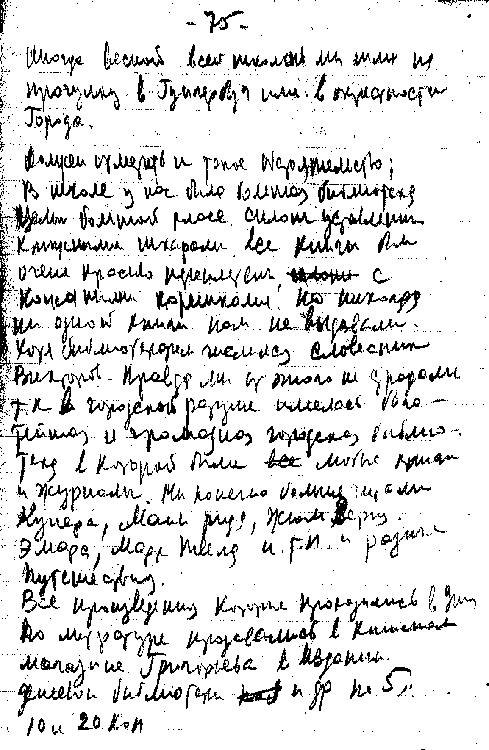 - 75 -
Иногда весной всей школой мы шли на
прогулку в или в окрестности
Города.
Должен отметить и такое обстоятельство;
В школе у нас была большая библиотека
Целый большой класс сплош уставлен
Книжными шкафами все книги были
очень красиво переплетены, с
Кожаными корешками, но никогда
ни одной книги нам не выдавали.
Хотя библиотекарем числился словесник
Викторов. Правда мы от этого не страдали
т.к. в городской ратуше имелась бога-
тейшая и громадная городская библио-
тека в которой были любые книги
и журналы. Мы конечно больше читали
Купера, Майн Рида, Жюль Верна.
Эмара, Марк Твена и т.п. и разные
путешествия.
Все произведения которые проходились в
по литературе продавались в Книжном
магазине Григорьева в Издании
дешевой библиотеки и др по 5,
10 и 20 коп